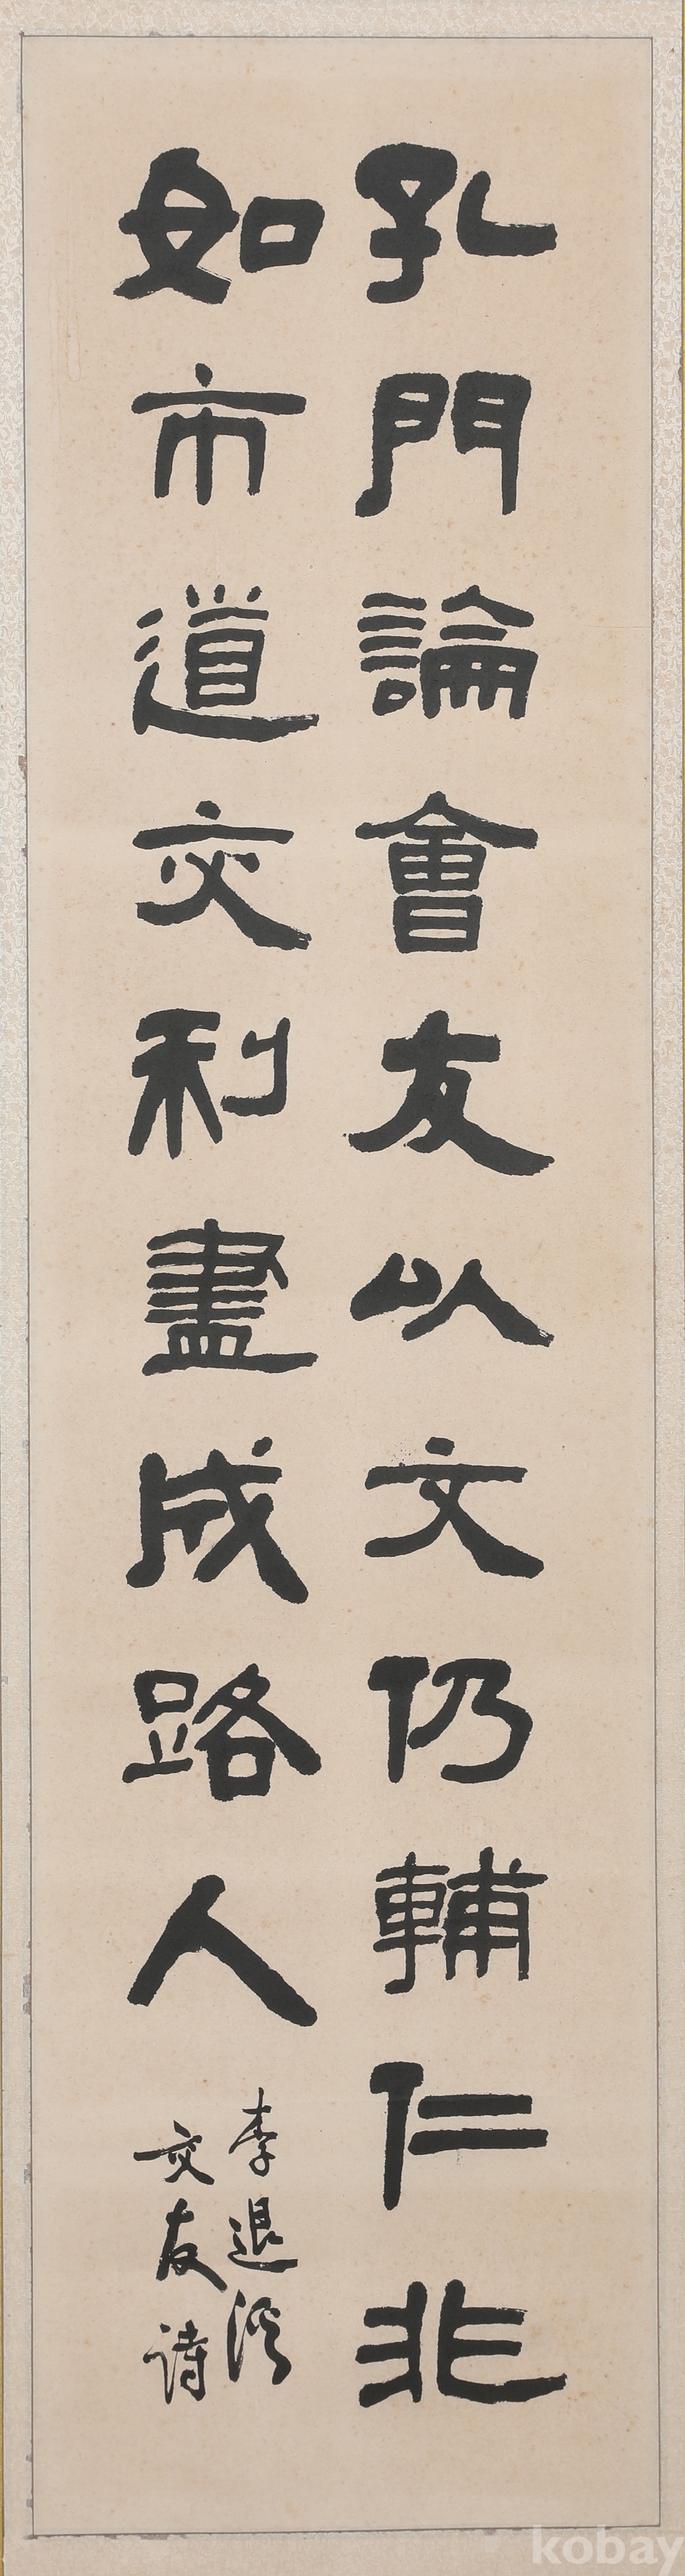 孔門論會友以文仍輔仁非
如市道交利盡成路人
李退溪
交友詩
kobay